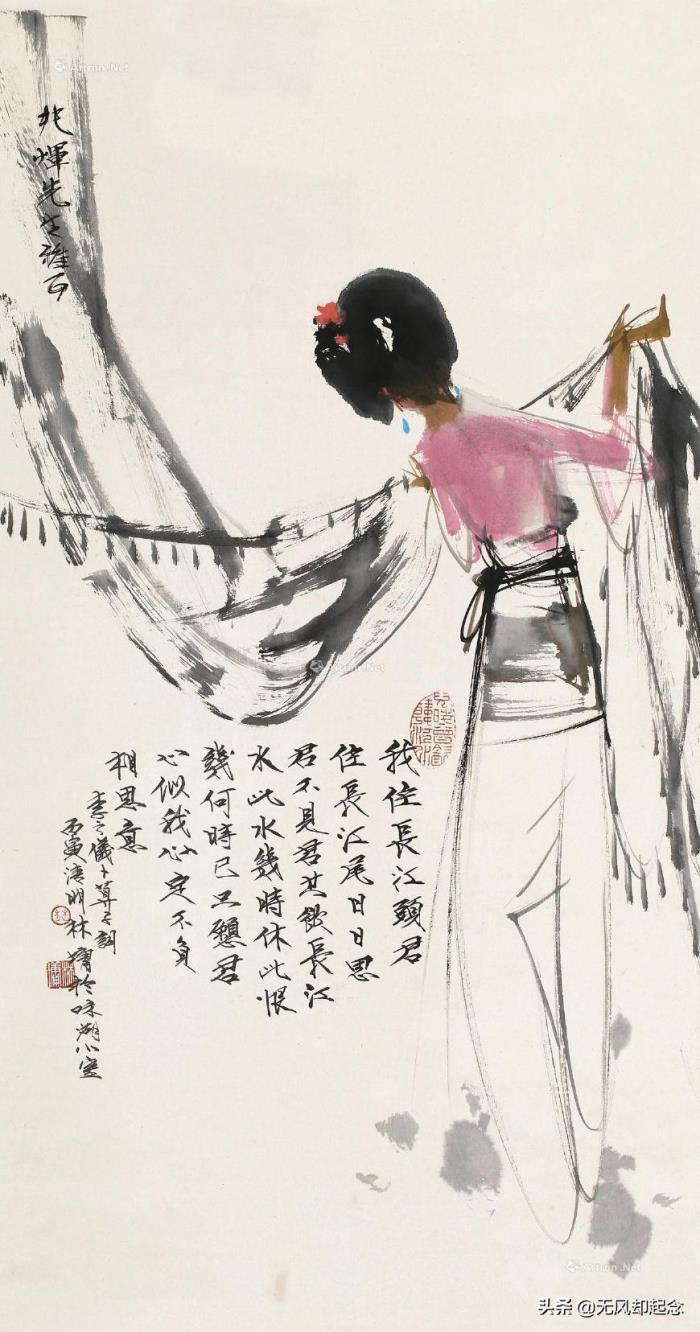 兆煇先生雅正
我住長江頭君
住長江尾日日思
君不見君共飲長江
水此水幾時休此恨
幾何時已只願君
心似我心定不負
相思意
李之儀卜算子詞
丙寅清明林墉於
Artron.Net
Artron.Net
Artron.Net
头条 @无风却起念